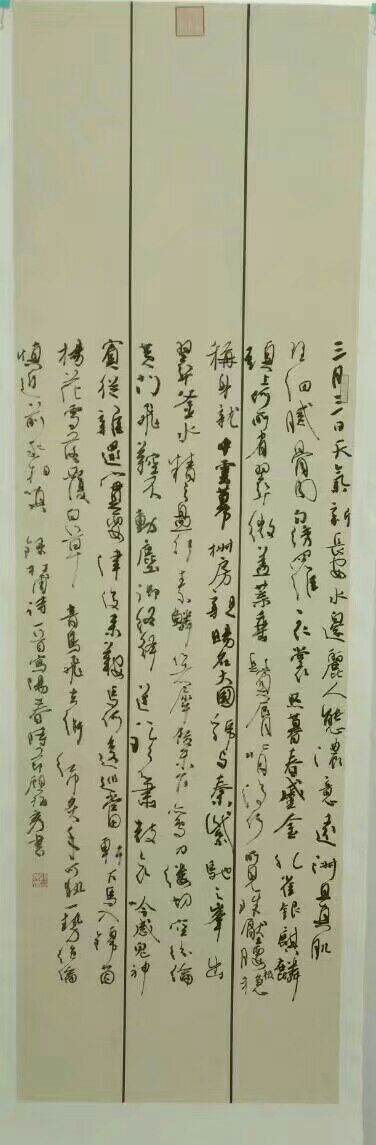 三月三日天氣新長安水邊麗人態濃意遠淑且真肌
理細膩骨肉勻繡羅衣裳照暮春蹙金孔雀銀麒麟
頭上何所有翠微盍葉垂鬢唇背後何所見珠壓腰衱穩
稱身就中雲幕椒房親賜名大國虢與秦紫駝之峯出
翠釜水精之盤行素鱗犀箸厭飫久未下鸞刀縷切空紛綸
黃門飛鞚不動塵御廚絡繹送八珍簫鼓哀吟感鬼神
賓從雜遝實要津後來鞍馬何逡巡當軒下馬入錦茵
楊花雪落覆白蘋青鳥飛去銜紅巾炙手可熱勢絕倫
慎近前丞相嗔 錄杜甫詩一首 陽春時節 書